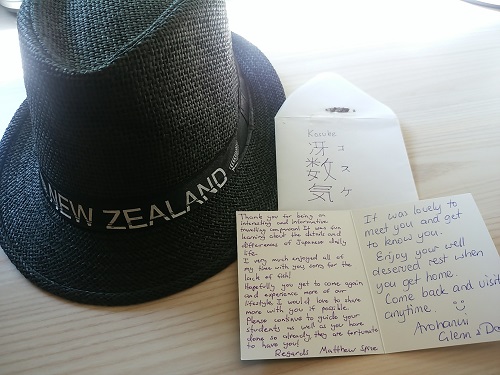 NEW ZEALAND
Kosuke
冴 コ
数 ス
気 ケ
Thank you for being an
interesting and informative
travelling companion! It was fun
learning about the details and
differences of Japanese daily
life.
I very much enjoyed all of
my time with you sorry for the
lack of fish!
Hopefully you get to come again
and experience more of our
lifestyle I would love to share
more with you if possible.
Please continue to guide your
students as well as you have
done so already, they are fortunate
to have you!
Regards Matthew
It was lovely to
meet you and get
to know you.
Enjoy your well
deserved rest when
you get home.
Come back and visit
anytime.
Arohanui
Glenn